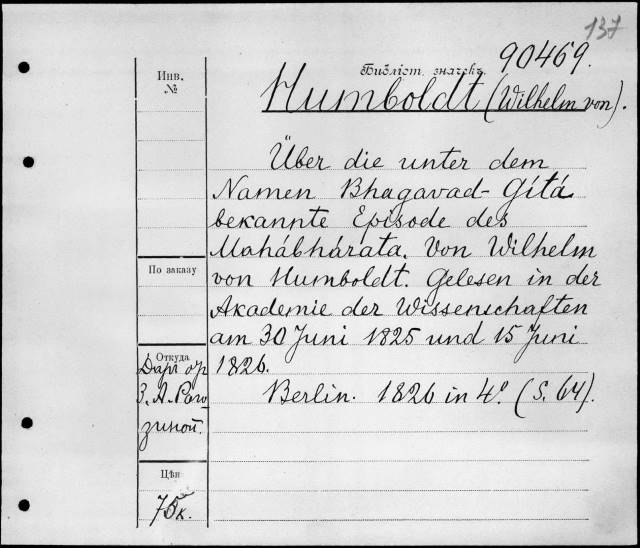 137
90469.
Инв.
№
Библіот. значекъ.
Humboldt (Wilhelm von).
Über die unter dem
Namen Bhagavad-Gítá
bekannte Episode des
Mahábhárata. Von Wilhelm
von Humboldt. Gelesen in der
Akademie der Wissenschaften
am 30 Juni 1825 und 15 Juni
1826.
Berlin. 1826 in 4º (S. 64).
По заказу
Откуда
З. А. Раго
зиной.
Цѣн
75 к.